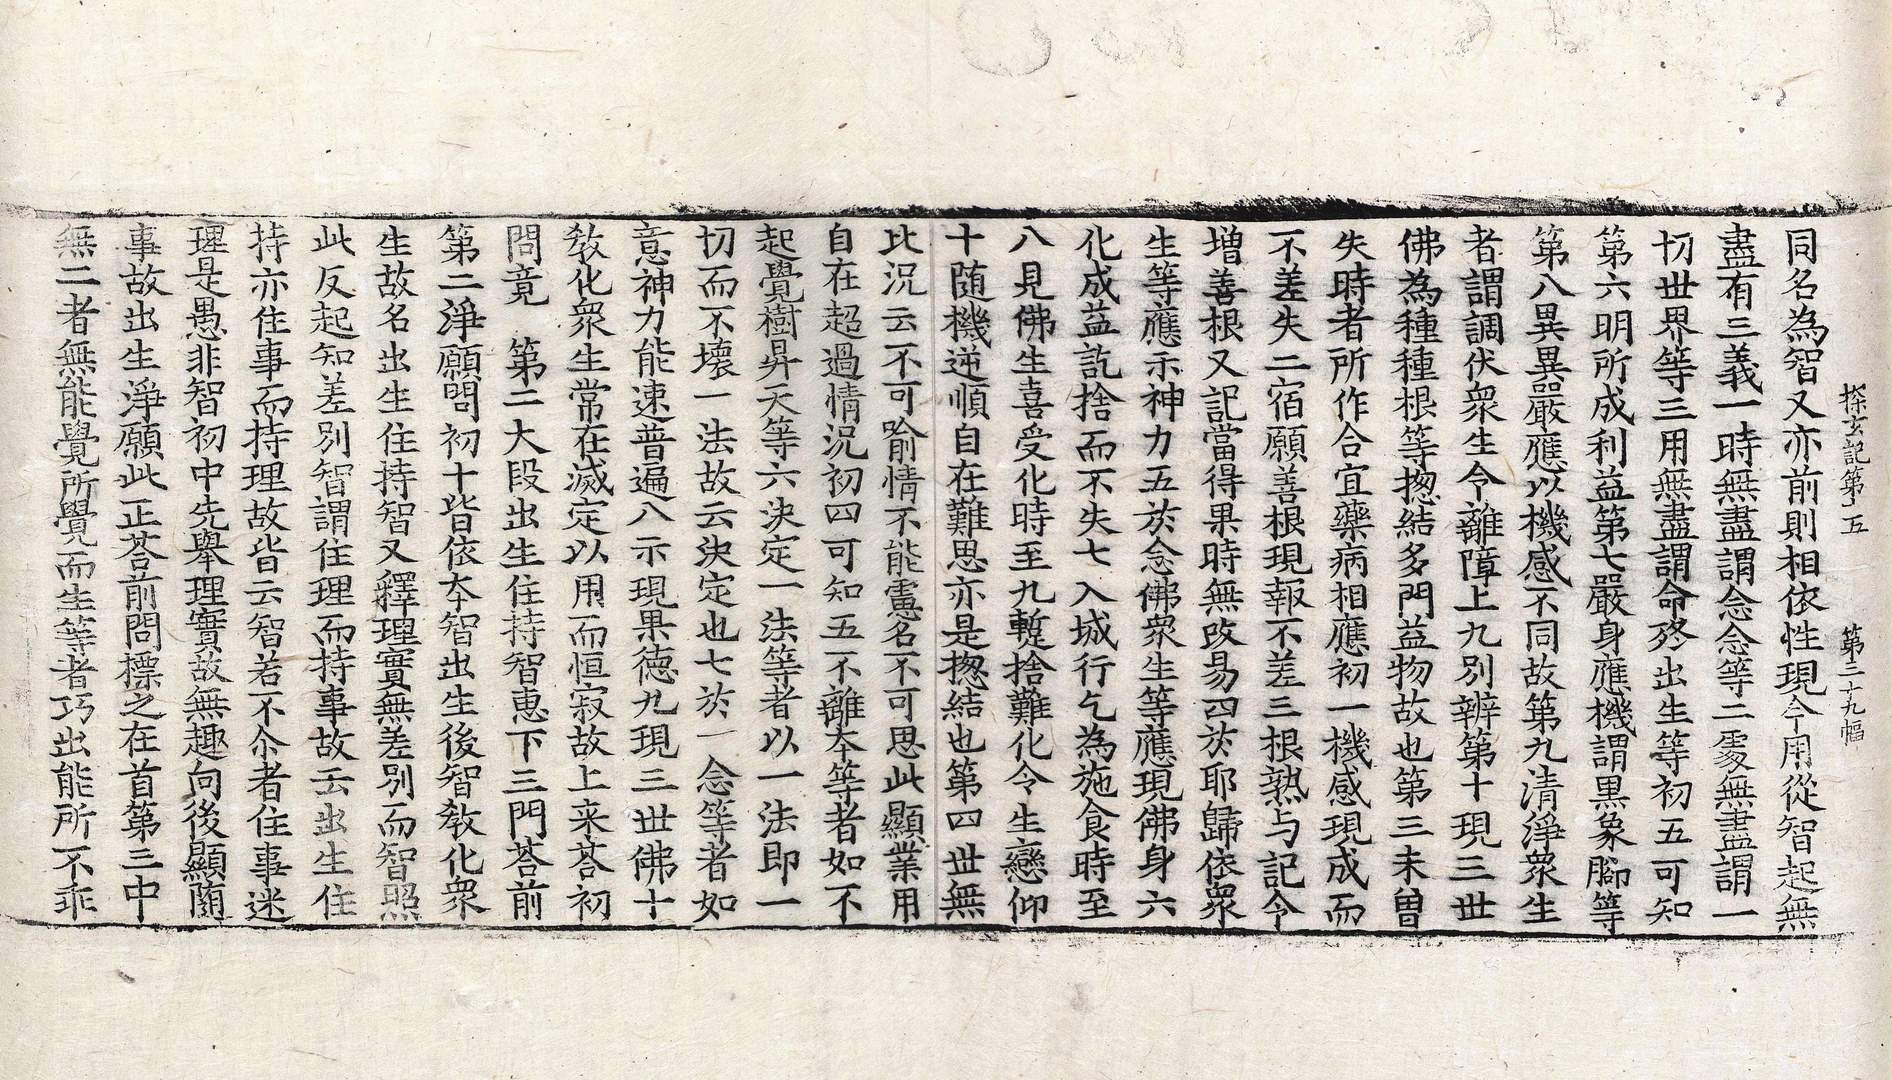 探玄記第十五　第三十九幅
同名為智又亦前則相依性現今用從智起無
盡有三義一時無盡謂念念等二處無盡謂一
切世界等三用無盡謂命終出生等初五可知
第六明所成利益第七嚴身應機謂黒象脚等
第八異異嚴應以機感不同故第九清淨衆生
者謂調伏衆生令離障上九別辨第十現三世
佛為種種根等揔結多門益物故也第三未曽
失時者所作合宜藥病相應初一機感現成而
不差失二宿願善根現報不差三根熟与記令
增善根又記當得果時無改易四於耶歸依衆
生等應示神力五於念佛衆生等應現佛身六
化成益訖捨而不失七入城行乞為施食時至
八見佛生喜受化時至九蹔捨難化令生戀仰
十随機逆順自在難思亦是揔結也第四世無
比況云不可喻情不能慮名不可思此顯業用
自在超過情況初四可知五不離夲等者如不
起覺樹昇天等六決定一法等者以一法即一
切而不壞一法故云決定也七於一念等者如
意神力能速普遍八示現果德九現三世佛十
敎化衆生常在滅定以用而恒寂故上来荅初
問竟　第二大段出生住持智惠下三門荅前
第二淨願問初十皆依夲智出生後智敎化衆
生故名出生住持智又釋理實無差別而智照
此反起知差別智謂住理而持事故云出生住
持亦住事而持理故皆云智若不尒者住事迷
理是愚非智初中先舉理實故無趣向後顯随
事故出生淨願此正荅前問標之在首第三中
無二者無能覺所覺而生等者巧出能所不乖